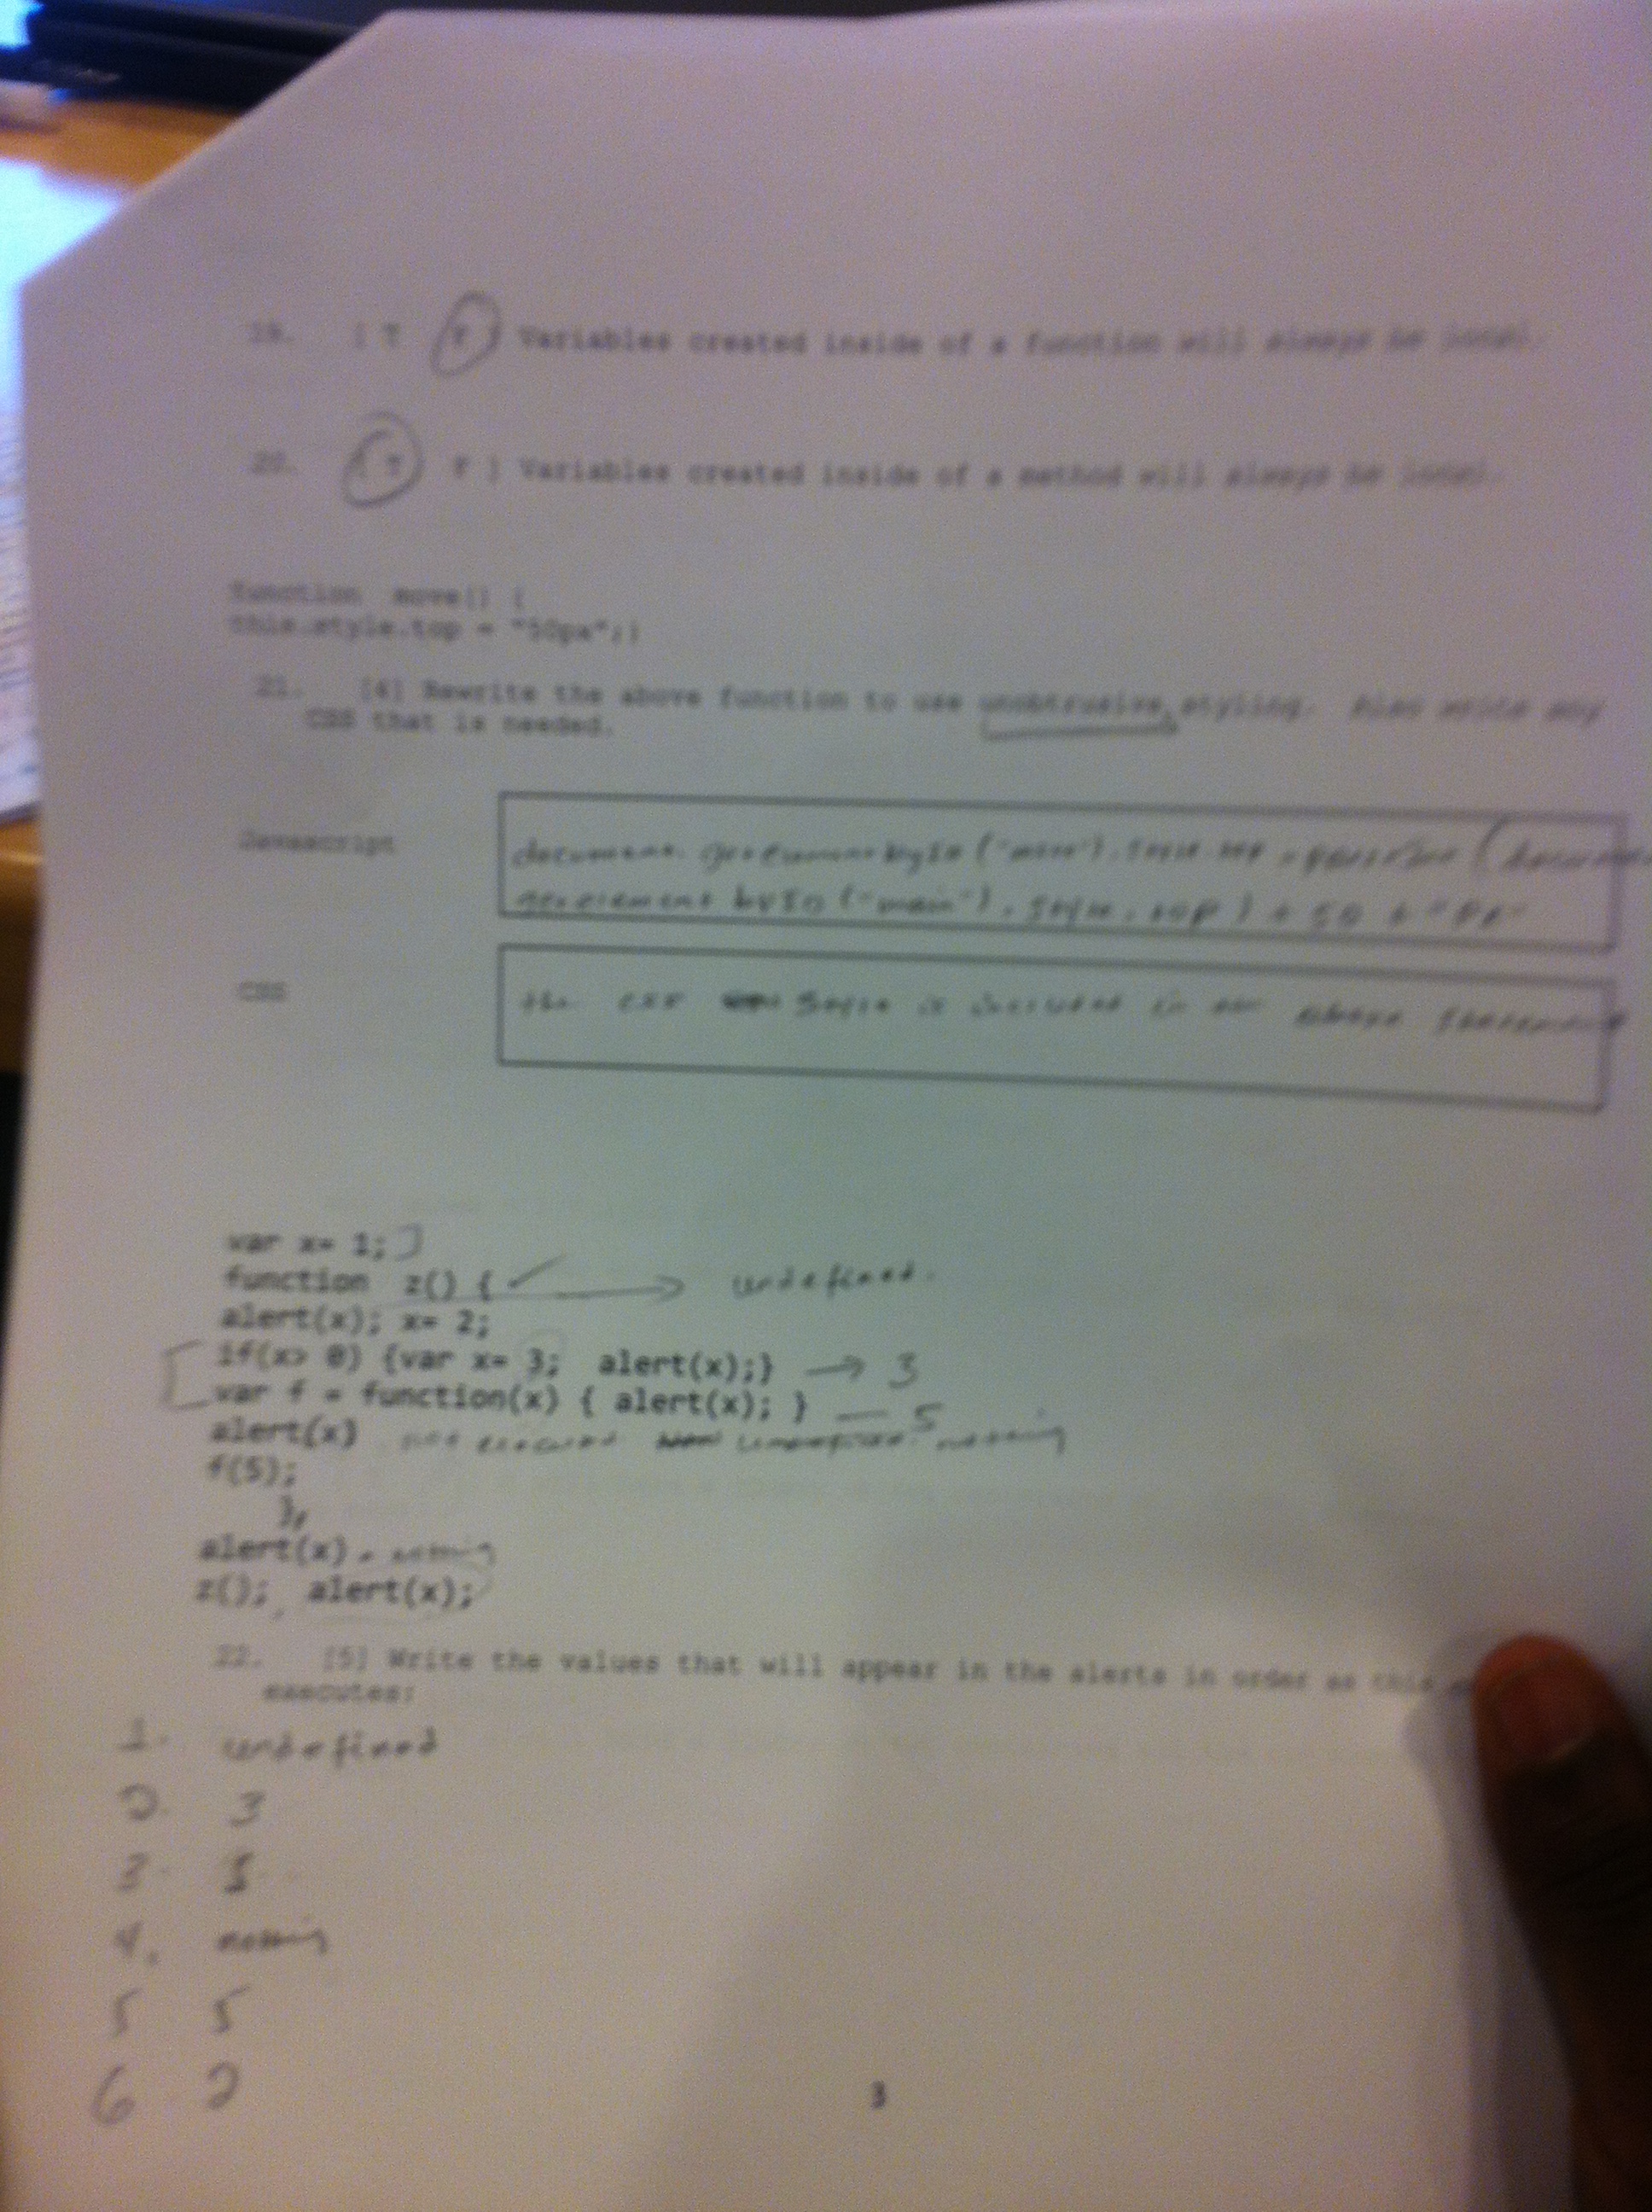 19. [ T F ] Variables created inside of a function will always be local.
20. [ T F ] Variables created inside of a method will always be local.
function move() {
this.style.top = "50px";}
21. [4] Rewrite the above function to use unobtrusive styling. Also write any
CSS that is needed.
Javascript
document. getElementbyId ("main"). style. top =
getelement byID ("main"). style. top ) + 50 + "px"
CSS
the css style is included in the above statement
var x= 1;
function z() { undefined.
alert(x); x= 2;
if(x> 0) {var x= 3; alert(x);} → 3
var f = function(x) { alert(x); } — 5
alert(x) not executed nothing
f(5);
},
alert(x) - nothing
z(); alert(x);
22. [5] Write the values that will appear in the alerts in order as this
executes:
1. undefined
2. 3
3.
4. nothing
5 5
6 2
3